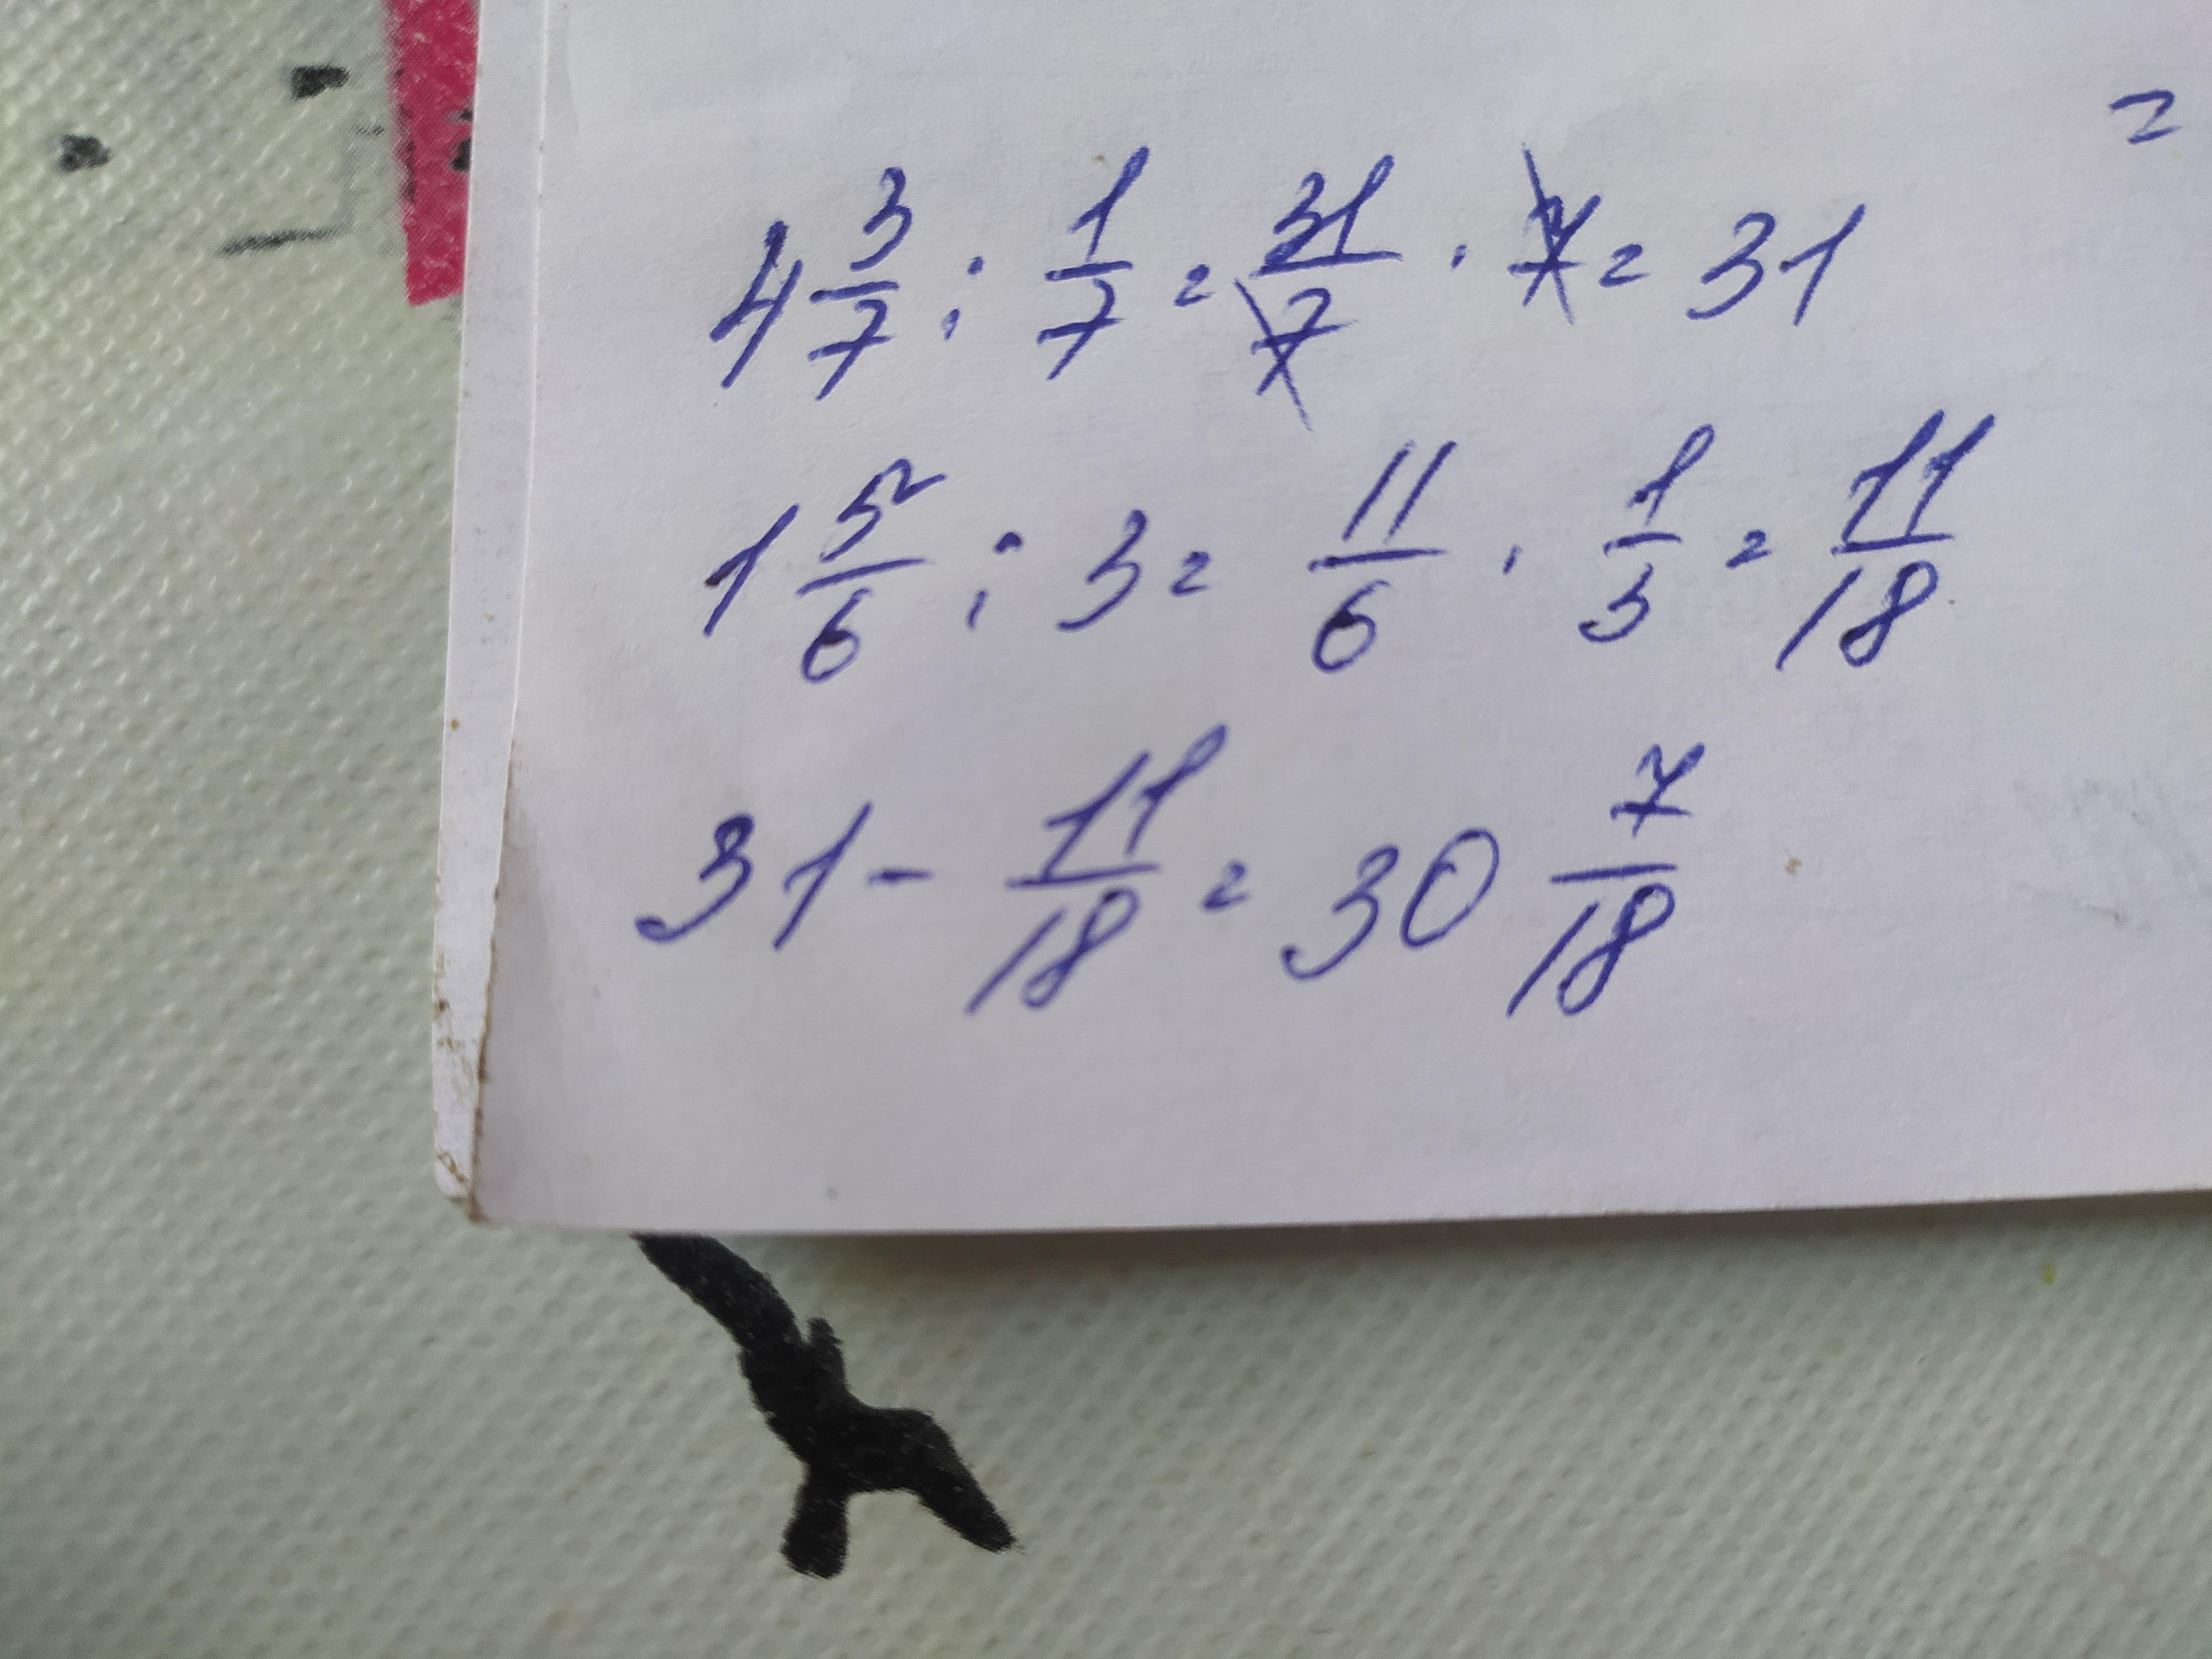 =
4 3/7 : 1/7 = 31/7 · 7 = 31
1 5/6 : 3 = 11/6 · 1/3 = 11/18
31 - 11/18 = 30 7/18